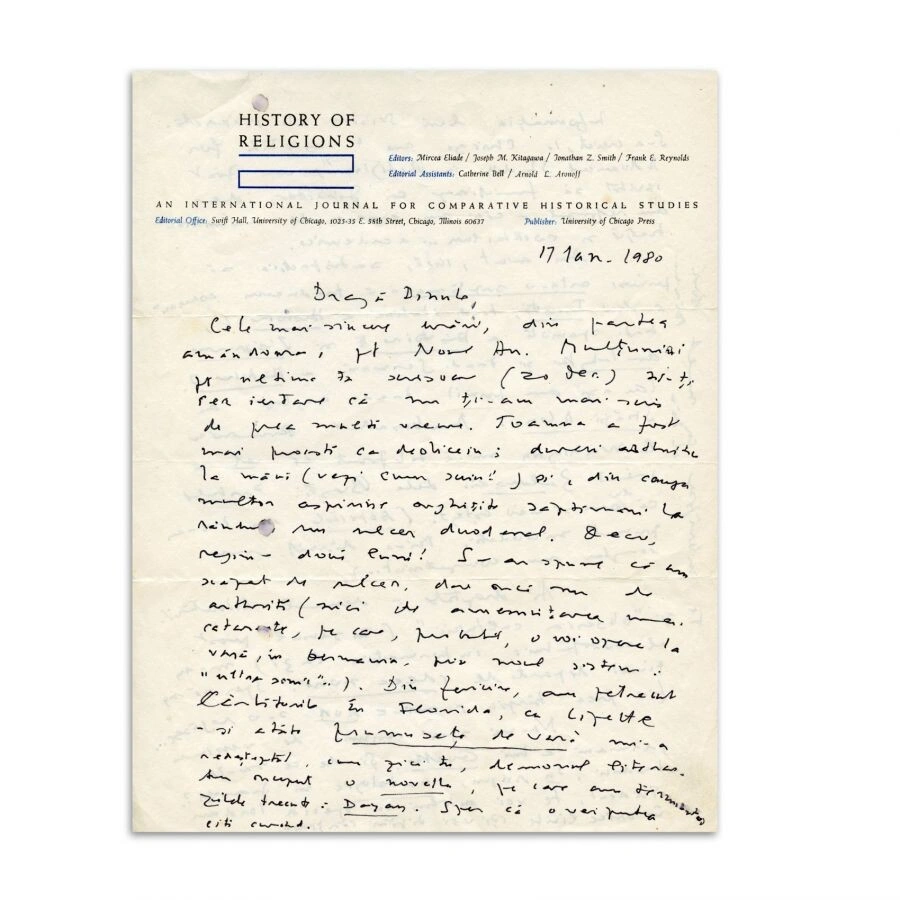 HISTORY OF
RELIGIONS
Editors: Mircea Eliade / Joseph M. Kitagawa / Jonathan Z. Smith / Frank E. Reynolds
Editorial Assistants: Catherine Bell / Arnold L. Aronoff
AN INTERNATIONAL JOURNAL FOR COMPARATIVE HISTORICAL STUDIES
Editorial Office: Swift Hall, University of Chicago, 1025-35 E. 58th Street, Chicago, Illinois 60637 Publisher: University of Chicago Press
17 Ian. 1980
Dragă Dinule,
Cele mai sincere urări, din partea
amândoura, pt. Noul An. Mulțumiri
pt ultima ta scrisoare (20 dec.)
cer iertare că nu ți-am mai scris
de prea multă vreme. Toamna a fost
mai proastă ca deobicei; dureri
la mâini (vezi cum scriu!) și, din cauza
multor aspirine înghițite săptămâni la
rândul un ulcer duodenal. Deci,
regim - două luni! S-ar spune că am
scăpat de ulcer, dar nici nu de
artrită (nici de amenințarea unei
cataracte, pe care, probabil, o voi opera la
vară, în Germania, prin noul sistem
"ultra sonic"..). Din fericire, am petrecut
Sărbătorile în Florida, cu Lisette
- și atâta frumusețe de vară mi-a
redeșteptat, cum zici tu, demonul literar.
Am început o novella, pe care am terminat-o
zilele trecute: Dayan. Sper că o vei putea
citi curând.